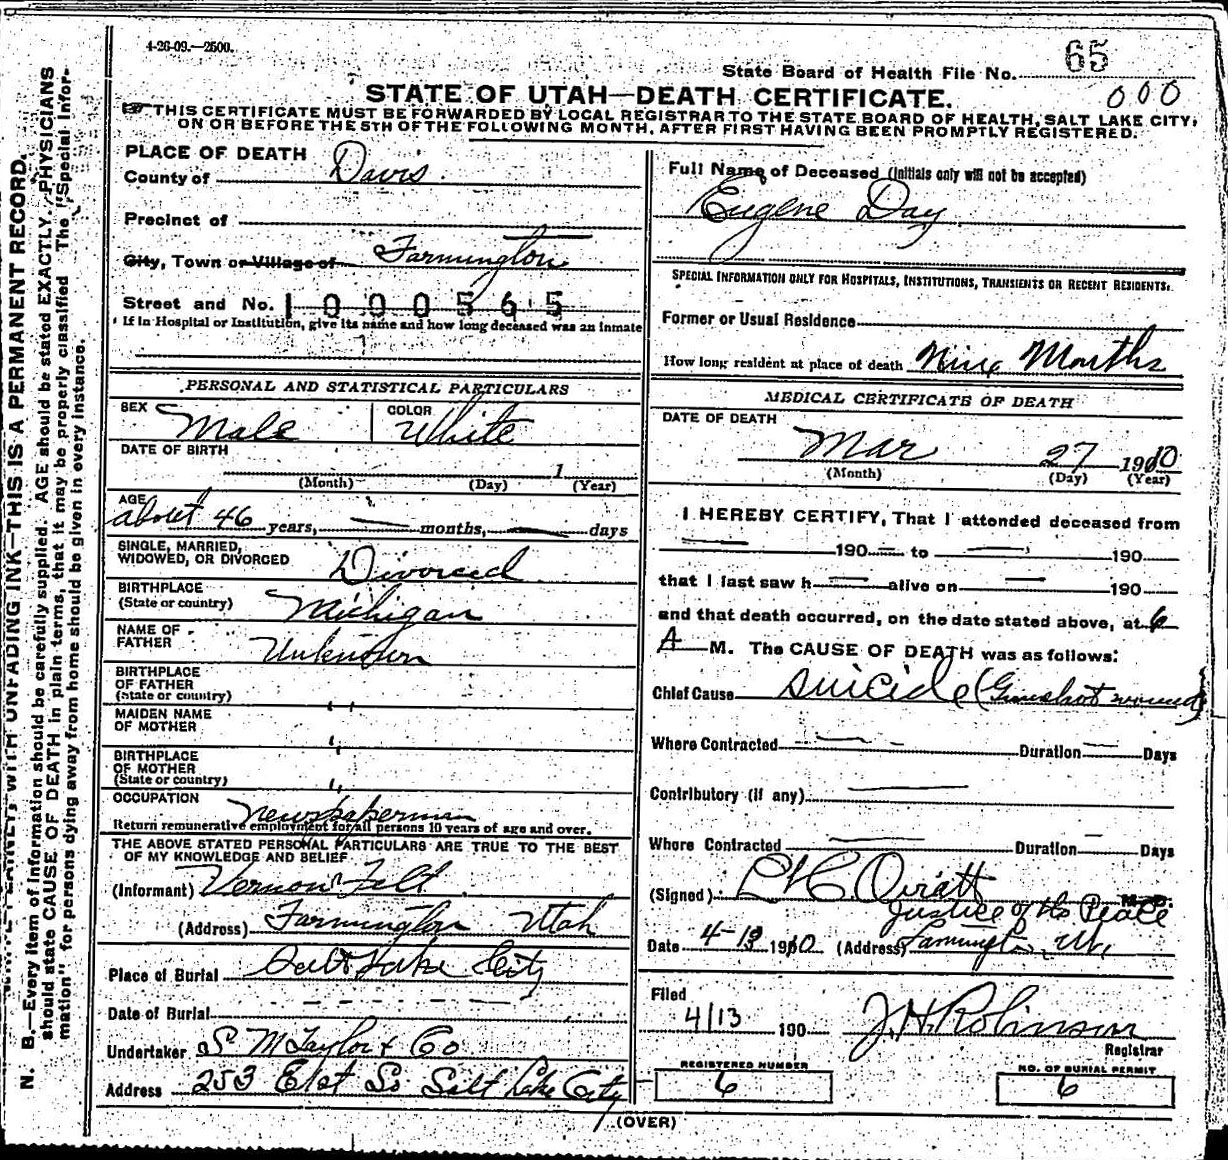 4-26-09.—2500.
State Board of Health File No. 65
000
STATE OF UTAH—DEATH CERTIFICATE.
THIS CERTIFICATE MUST BE FORWARDED BY LOCAL REGISTRAR TO THE STATE BOARD OF HEALTH, SALT LAKE CITY,
ON OR BEFORE THE 5TH OF THE FOLLOWING MONTH, AFTER FIRST HAVING BEEN PROMPTLY REGISTERED.
N. B.—Every item of information should be carefully supplied. AGE should be stated EXACTLY. PHYSICIANS
should state CAUSE OF DEATH in plain terms, that it may be properly classified. The "Special Infor-
mation" for persons dying away from home should be given in every instance.
WITH UNFADING INK—THIS IS A PERMANENT RECORD.
PLACE OF DEATH
County of Davis.
Precinct of
City, Town or Village of Farmington
Street and No. 1000565
If in Hospital or Institution, give its name and how long deceased was an inmate
PERSONAL AND STATISTICAL PARTICULARS
SEX Male COLOR White
DATE OF BIRTH
1
(Month) (Day) (Year)
AGE
about 46 years, — months, — days
SINGLE, MARRIED,
WIDOWED, OR DIVORCED Divorced
BIRTHPLACE
(State or country) Michigan
NAME OF
FATHER Unknown
BIRTHPLACE
OF FATHER
(State or country) "
MAIDEN NAME
OF MOTHER "
BIRTHPLACE
OF MOTHER
(State or country) "
OCCUPATION Newspaperman
Return remunerative employment for all persons 10 years of age and over.
THE ABOVE STATED PERSONAL PARTICULARS ARE TRUE TO THE BEST
OF MY KNOWLEDGE AND BELIEF
(Informant) Vernon Felt
(Address) Farmington Utah
Place of Burial Salt Lake City
Date of Burial - - - - -
Undertaker S. M Taylor & Co
Address 253 E 1st So Salt Lake City
Full Name of Deceased (Initials only will not be accepted)
Eugene Day
SPECIAL INFORMATION ONLY FOR HOSPITALS, INSTITUTIONS, TRANSIENTS OR RECENT RESIDENTS.
Former or Usual Residence
How long resident at place of death Nine Months
MEDICAL CERTIFICATE OF DEATH
DATE OF DEATH
Mar 27 1910
(Month) (Day) (Year)
I HEREBY CERTIFY, That I attended deceased from
— 190 — to — 190
that I last saw h — alive on — 190
and that death occurred, on the date stated above, at 6
A M. The CAUSE OF DEATH was as follows:
Chief Cause Suicide (Gunshot wound)
Where Contracted — Duration — Days
Contributory (if any) —
Where Contracted — Duration — Days
(Signed) L H C. Oviatt M. D.
Justice of the Peace
Date 4-13 1910 (Address) Farmington, Ut.
Filed
4/13 190 J. H. Robinson
Registrar
REGISTERED NUMBER
6
NO. OF BURIAL PERMIT
6
(OVER)